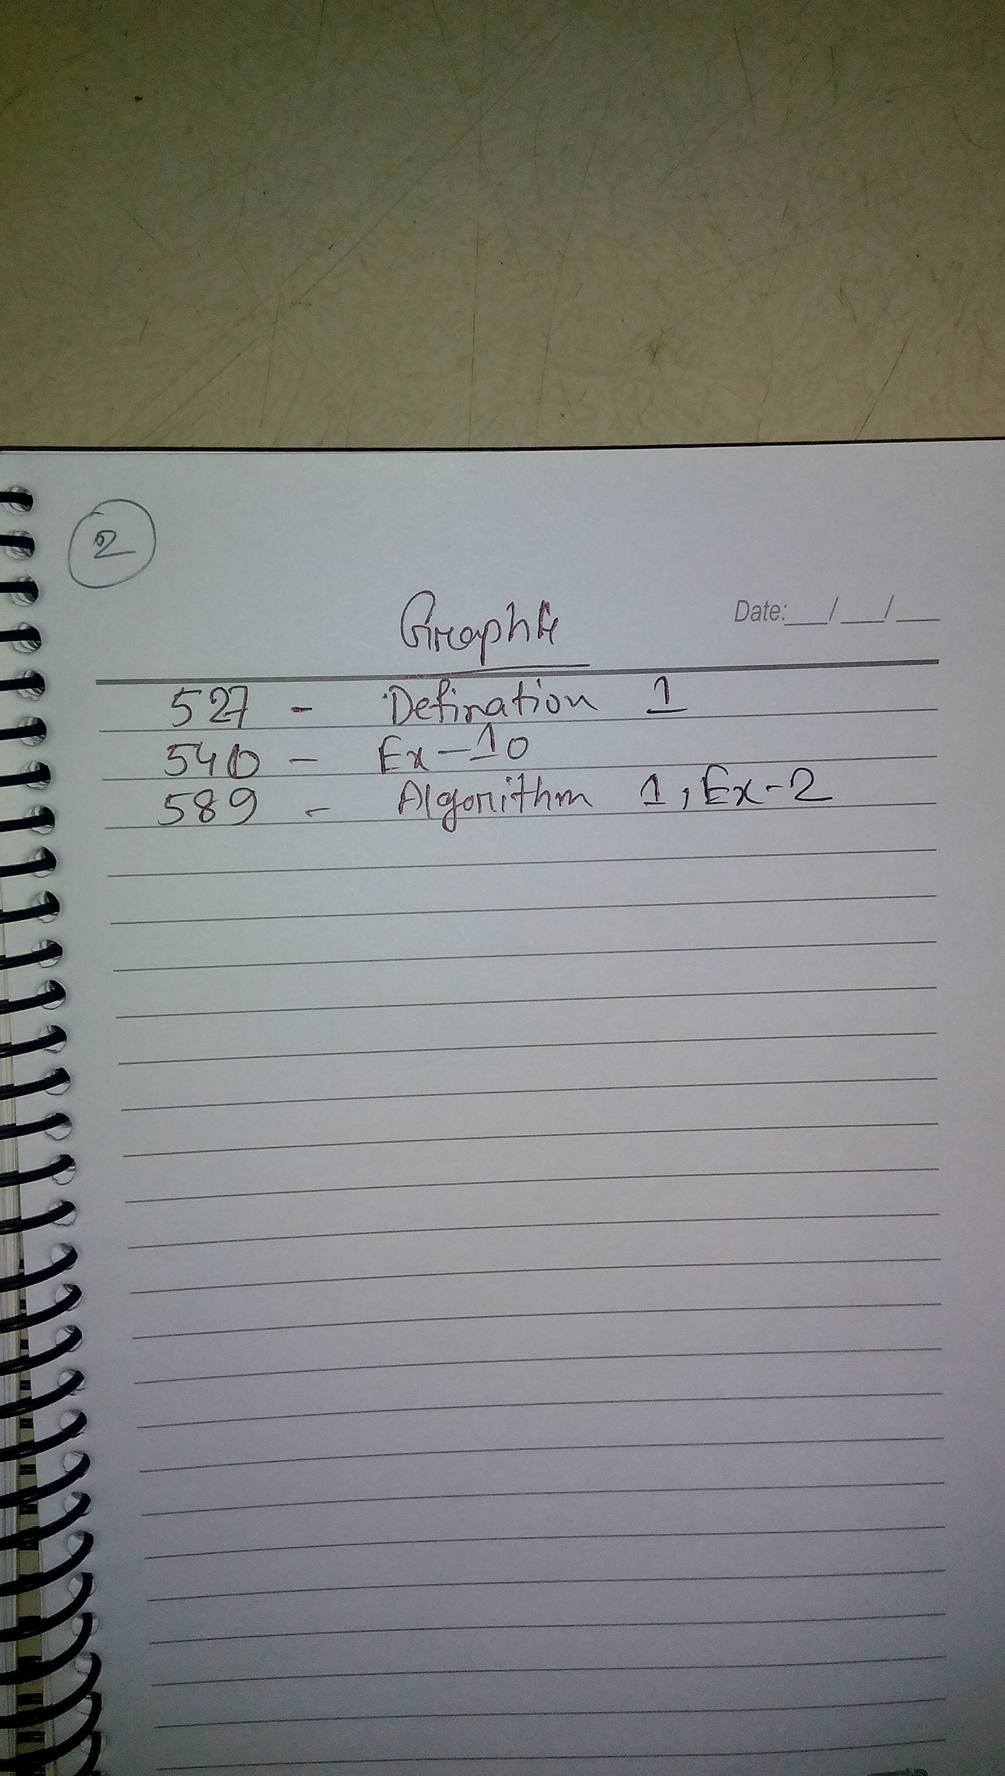 2
Graphs
Date:___/___/___
527 - Defination 1
540 - Ex-10
589 - Algorithm 1, Ex-2